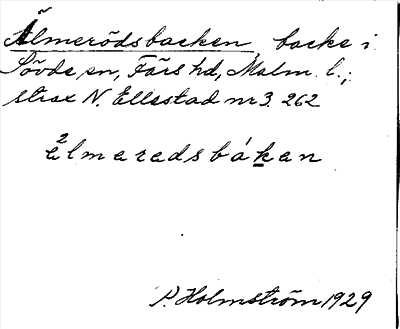 Älmerödsbacken, backe i
Sövde sn, Färs hd, Malm. l.;
strax N. Ellestad nr 3. 262
ä²lmeredsbáken
P. Holmström 1929